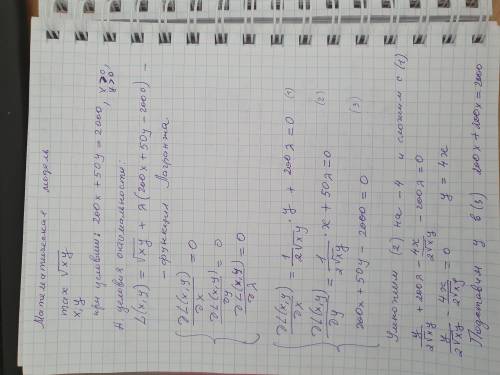 Математическая модель
max √xy
x,y
при условии: 200x + 50y = 2000, x≥0, y≥0,
Δ условия оптимальности:
L(x,y) = √xy + λ(200x + 50y − 2000) −
− функция Лагранжа.
{ ∂L(x,y)/∂x = 0
∂L(x,y)/∂y = 0
∂L(x,y)/∂λ = 0
{ ∂L(x,y)/∂x = 1/(2√xy) · y + 200λ = 0 (1)
∂L(x,y)/∂y = 1/(2√xy) · x + 50λ = 0 (2)
200x + 50y − 2000 = 0 (3)
Умножим (2) на −4 и сложим с (1)
y/(2√xy) + 200λ − 4x/(2√xy) − 200λ = 0
y/(2√xy) − 4x/(2√xy) = 0 y = 4x
Подставим y в (3) 200x + 200x = 2000